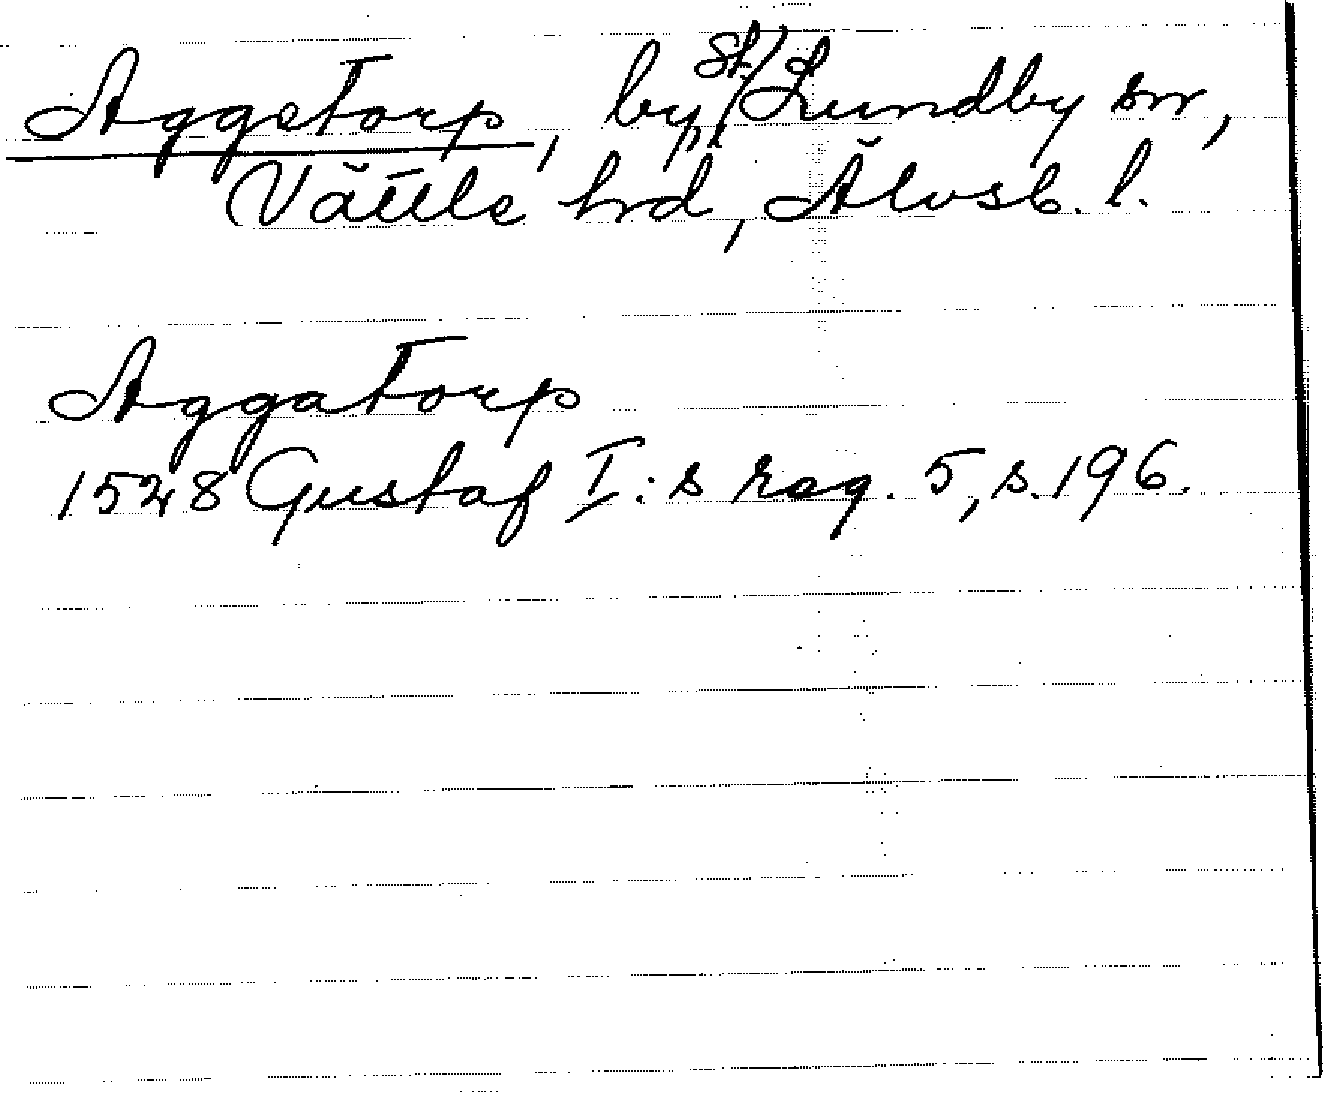 Aggetorp, by, St. Lundby sn,
Vättle hd, Älvsb. l.
Aggatorp
1528 Gustaf I:s reg. 5, s. 196.